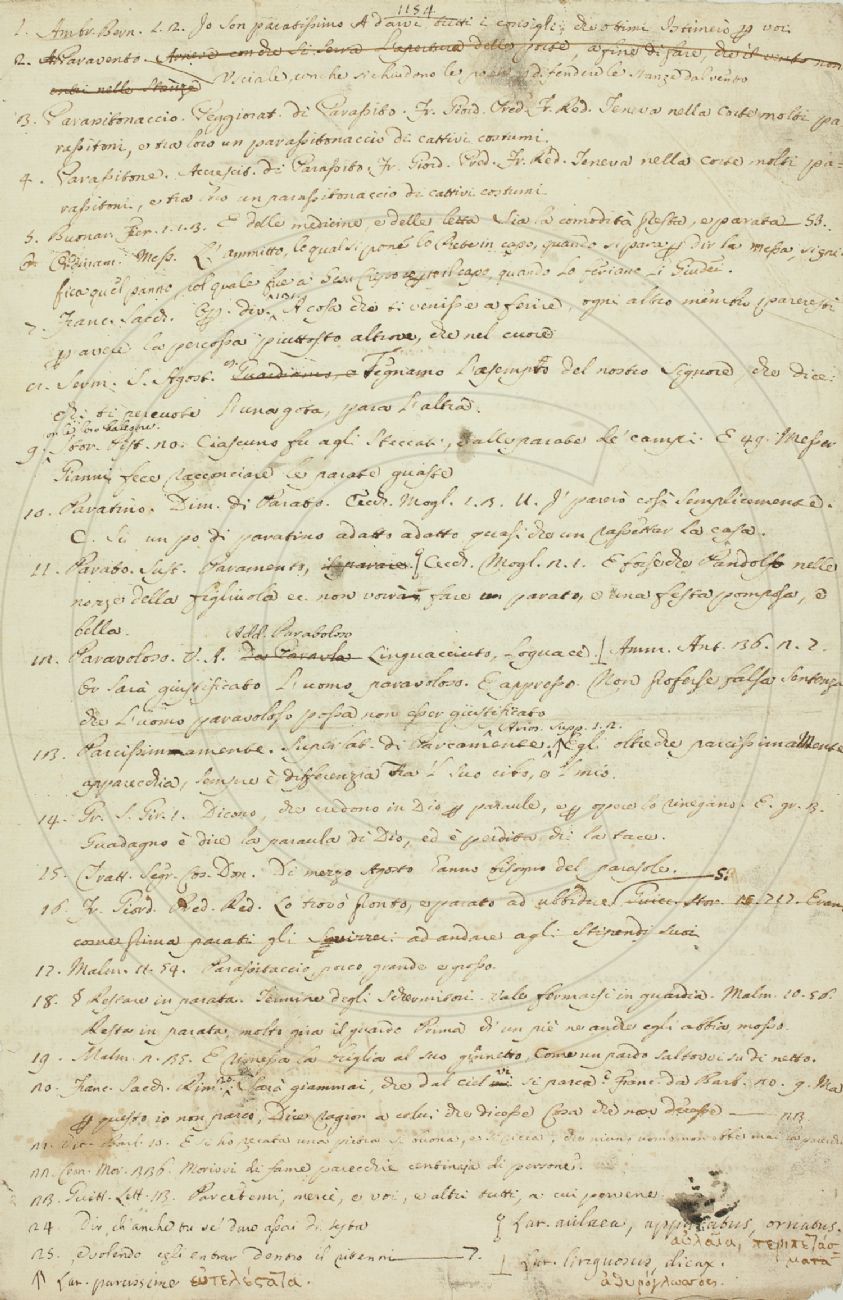 1184
1. Ambr. Bern. 1. 2. Io son paratissimo a darvi tutti i consigli, che ottimi estimerò p voi
2. Paravento. Arnese con che si serra l'apertura delle porte, a fine di fare, che il vento non
entri nelle stanze
Usciale, con che si chiudono le porte p difender le stanze dal vento
3. Parassitonaccio. Peggiorat. di Parassito. Fr. Giord. Pred. Fr. Red. Teneva nella corte molti pa-
rassitoni, e tra loro un parassitonaccio di cattivi costumi.
4. Parassitone. Accrescit. di Parassito. Fr. Giord. Pred. Fr. Red. Teneva nella corte molti pa-
rassitoni, e tra loro un parassitonaccio di cattivi costumi
5. Buonar. Fier. 1. 1. 3. E delle medicine, e delle letta Sia la comodità presta, e parata
Mess. L'ammitto, lo qual si pone lo Prete in capo, quando si para p dir la messa, signi-
fica quel panno, col quale fu a Gesù coperto il capo, quando lo feriano li Giudei.
7. Franc. Sacch. Op. div. A cosa che ti venisse a ferire, ogni altro membro pareresti
p avere la percossa piuttosto altrove, che nel cuore
Serm. S. Agost. Guardiamo, e Tegnamo l'asempro del nostro Signore, che dice:
chi ti percuote l'una gota, para l'altra.
9. Stor. Pist. 20. Ciascuno fu agli steccati, e alle parate de' campi. E 49. Messer
Gianni fece racconciare le parate guaste
10. Paratino. Dim. di Parato. Cecch. Mogl. 1. 3. U. I' parerò così semplicemente.
C. Sì un po di paratino adatto adatto, quasi che un rassettar la casa.
11. Parato. Sust. Paramento, Cecch. Mogl. 2. 1. E forse che Pandolfo nelle
nozze della figliuola ec. non vorrà fare un parato, e una festa pomposa, e
bella.
Add. Paraboloso
12. Paravoloso. V. A. Da Paravla Linguacciuto, Loquace. Amm. Ant. 36. 2. 7.
Or sarà giustificato l'uomo paravoloso. E appresso. Non proferse falsa sentenza
che l'uomo paravoloso possa non esser giustificato
13. Parcissimamente. Superlat. di Parcamente. Egli oltrechè parcissimamente
apparecchia, sempre è differenzia tra 'l suo cibo, e 'l mio.
14. Gr. S. Gir. 1. Dicono, che credono in Dio p paraule, e p opere lo rinegano. E. gr. 3.
Guadagno è dire la paraula di Dio, ed è perdita chi la tace.
15. Tratt. Segr. Cos. Don. Di merzo Agosto anno bisogno del parasole.
16. Fr. Giord. Pred. Red. Lo trovò pronto, e parato ad ubbidire Guicc. Stor. 15. 717. Eran
come prima parati gli Svizzeri ad andare agli stipendj suoi
17. Malm. 11. 54. Parassitaccio, porco grande e grosso.
18. § Restare in parata. Termine degli schermitori. Vale fermarsi in guardia. Malm. 10. 56.
Resta in parata, molto gira il guardo Prima di un piè ne anche egli abbia mosso.
19. Malm. 2. 35. E rimessa la briglia al suo ginnetto, Come un pardo saltovvi su di netto.
20. Franc. Sacch. Rim. Sarà giammai, che dal ciel si parca? Franc. da Barb. 20. 9. Ma
p questo io non parco, Dire ragion a colui, che dicesse Cosa che non dicesse
22. Cron. Mor. 336. Morìovvi di fame parecchie centinaja di persone.
23. Guitt. Lett. 13. Parcetemi, mercè, e voi, e altri tutti, a cui porvene
24. Dir, ch'anche tu se' duro assai di testa
25. , e volendo egli entrar dentro il ritenni 7.
Lat. parcissime εὐτελέστατα.
§ Lat. aulaea, apparatus, ornatus.
αὐλαία, περιπετάσ-
ματα
Lat. linguosus, dicax.
ἀθυρόγλωσσος.